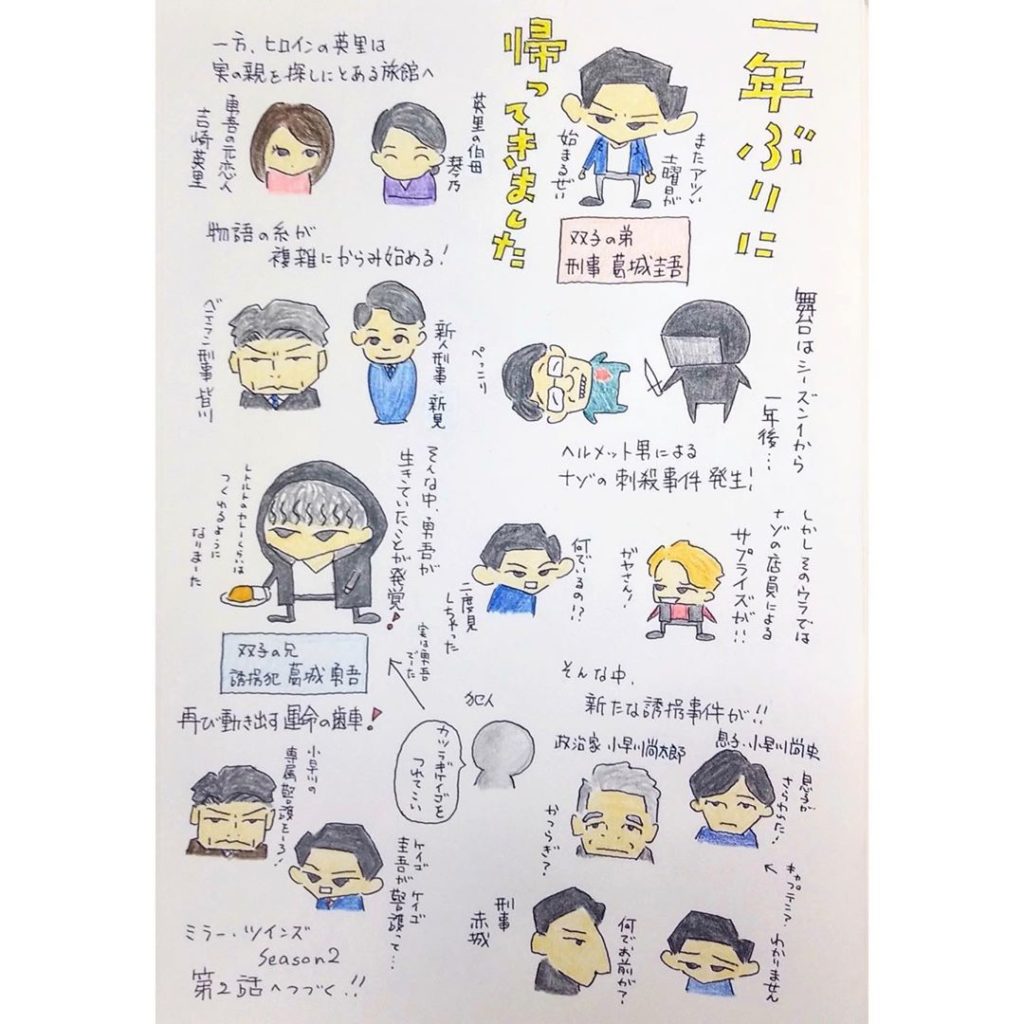 一年ぶりに
帰ってきました
またアツい
土曜日が
始まるぜい
双子の弟
刑事 葛城圭吾
舞台はシーズン1から
一年後…
ぺっこり
ヘルメット男による
ナゾの刺殺事件発生!
しかしそのウラでは
ナゾの店員による
サプライズが!!
ガヤさん!
何でいるの!?
二度見
しちゃった
そんな中、
新たな誘拐事件が!!
息子・小早川尚史
政治家 小早川尚太郎
かつらぎ?
キャプテン?
わかりません
何でお前が?
刑事
赤城
犯人
カツラギケイゴを
つれてこい
実は勇吾
でした
一方、ヒロインの英里は
実の親を探しにとある旅館へ
英里の伯母
琴乃
勇吾の元恋人
吉崎英里
物語の糸が
複雑にからみ始める!
新人刑事 新見
ベテラン刑事 皆川
そんな中、勇吾が
生きていたことが発覚!
レトルトのカレーくらいは
つくれるように
なりました
双子の兄
誘拐犯 葛城勇吾
再び動き出す運命の歯車!
小早川の
専属警護をしろ!
ケイゴ ケイゴ
圭吾が警護って…
ミラー・ツインズ
Season2
第2話へつづく!!